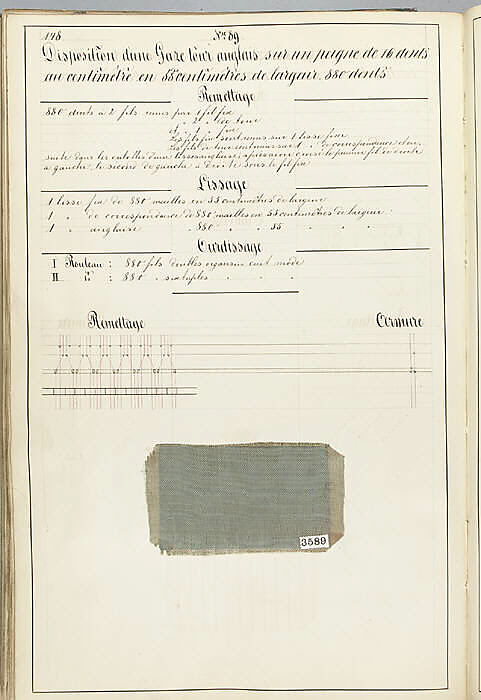 148
Nº 89
Disposition d'une Gaze tour anglais sur un peigne de 16 dents
au centimètre en 55 centimètres de largeur. 880 dents
Remettage
880 dents à 2 fils remis par 1 fil fixe
2 de tour
et 1 fixe
Les fils fixe sont remis sur 1 lisse fixe
Les fils de tour sont remis sur 1 de correspondance et en
suite dans les
à gauche, le second de gauche à droite sous le fil fixe
Lissage
1 lisse fixe de 880 mailles en 55 centimètres de largeur
1 " de correspondance de 880 mailles en 55 centimètres de largeur
1 " anglaise " 880 " " 55 " " "
Ourdissage
I Rouleau : 880 fils doubles organsin cuit mode
II Dº : 880 " sextuples " " "
Remettage
Armure
3589